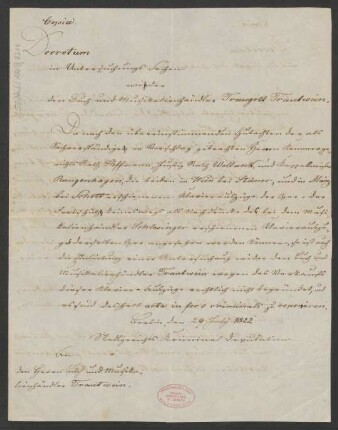 Copia
Decretum
in Untersuchungs Sachen
wider
den Buch und Musikalienhändler Traugott Trautwein.
Da nach den übereinstimmenden Gutachten der als
Sachverständige in Vorschlag gebrachten Herren Kammerge-
richts Rath Hoffmann, Justiz Rath Wollank und Kapellmeister
Rungenhagen, die beiden in Wien bei Steiner, und in Mainz
bei Schott erschienenen Klavierauszüge der Oper der
Freischütz keineswegs als Nachdruck des bei dem Musi-
kalienhändler Schlesinger erschienenen Klavierauszu-
ges derselben Oper angesehen werden können, so ist auch
die Einleitung einer Untersuchung wider den Buch und
Musikalienhändler Trautwein wegen des Verkaufs
dieser Klavier-Auszüge rechtlich nicht begründet, und
es sind deshalb acta in foro criminali zu reponiren.
Berlin, den 29 1822
Stadtgerichts Criminal Deputation
An
den Herrn Buch und Musika-
lienhändler Trautwein.